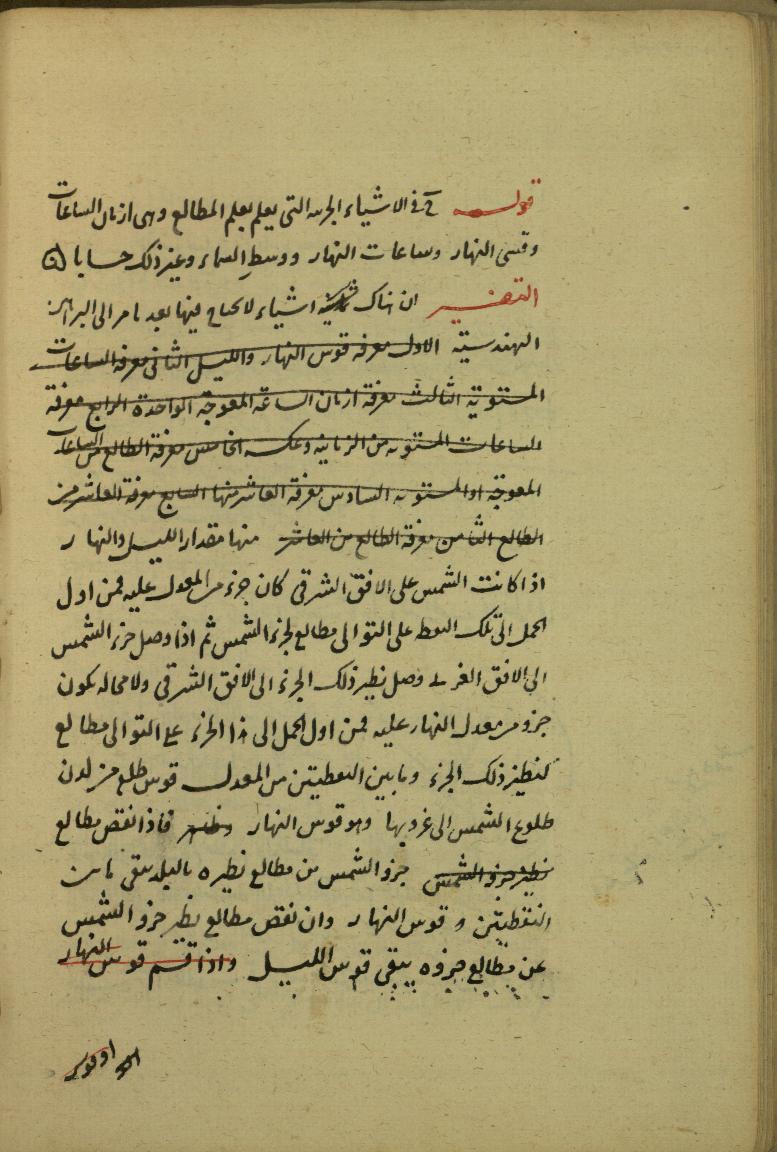 قوله ح في الاشياء الجزئية التي يعلم بعلم المطالع وهي ازمان الساعات
وقسي النهار وساعات النهار ووسط السماء وغير ذلك حسابا
التفسير ان هناك ثمانية اشياء لا نحتاج فيها بعد ما مر الى البراهين
الهندسية الاول معرفة قوس النهار والليل الثاني معرفة الساعات
المستوية الثالث معرفة ازمان الساعة المعوجة الواحدة الرابع معرفة
الساعات المستويه من الزمانيه وعكسه الخامس معرفة الطالع من الساعات
المعوجة او المستويه السادس معرفة العاشر منها السابع معرفة العاشر من
الطالع الثامن معرفة الطالع من العاشر منها مقدار الليل والنهار
اذا كانت الشمس على الافق الشرقي كان جزء من المعدل عليه فمن اول
الحمل الى تلك النقطه على التوالي مطالع لجزء الشمس ثم اذا وصل جزء الشمس
الى الافق الغربي وصل نظير ذلك الجزء الى الافق الشرقي ولا محاله يكون
جزو من معدل النهار عليه فمن اول الحمل الى هذا الجزء على التوالي مطالع
لنظير ذلك الجزء وما بين النقطتين من المعدل قوس طلع من لدن
طلوع الشمس الى غروبها وهو قوس النهار فاذا نقص مطالع
نظير جزو الشمس جزو الشمس من مطالع نظيره بالبلد يبقى ما بين
النقطتين و قوس النهار وان نقص مطالع نظير جزو الشمس
عن مطالع جزوه يبقى قوس الليل واذا قسم قوس النهار
او قوس